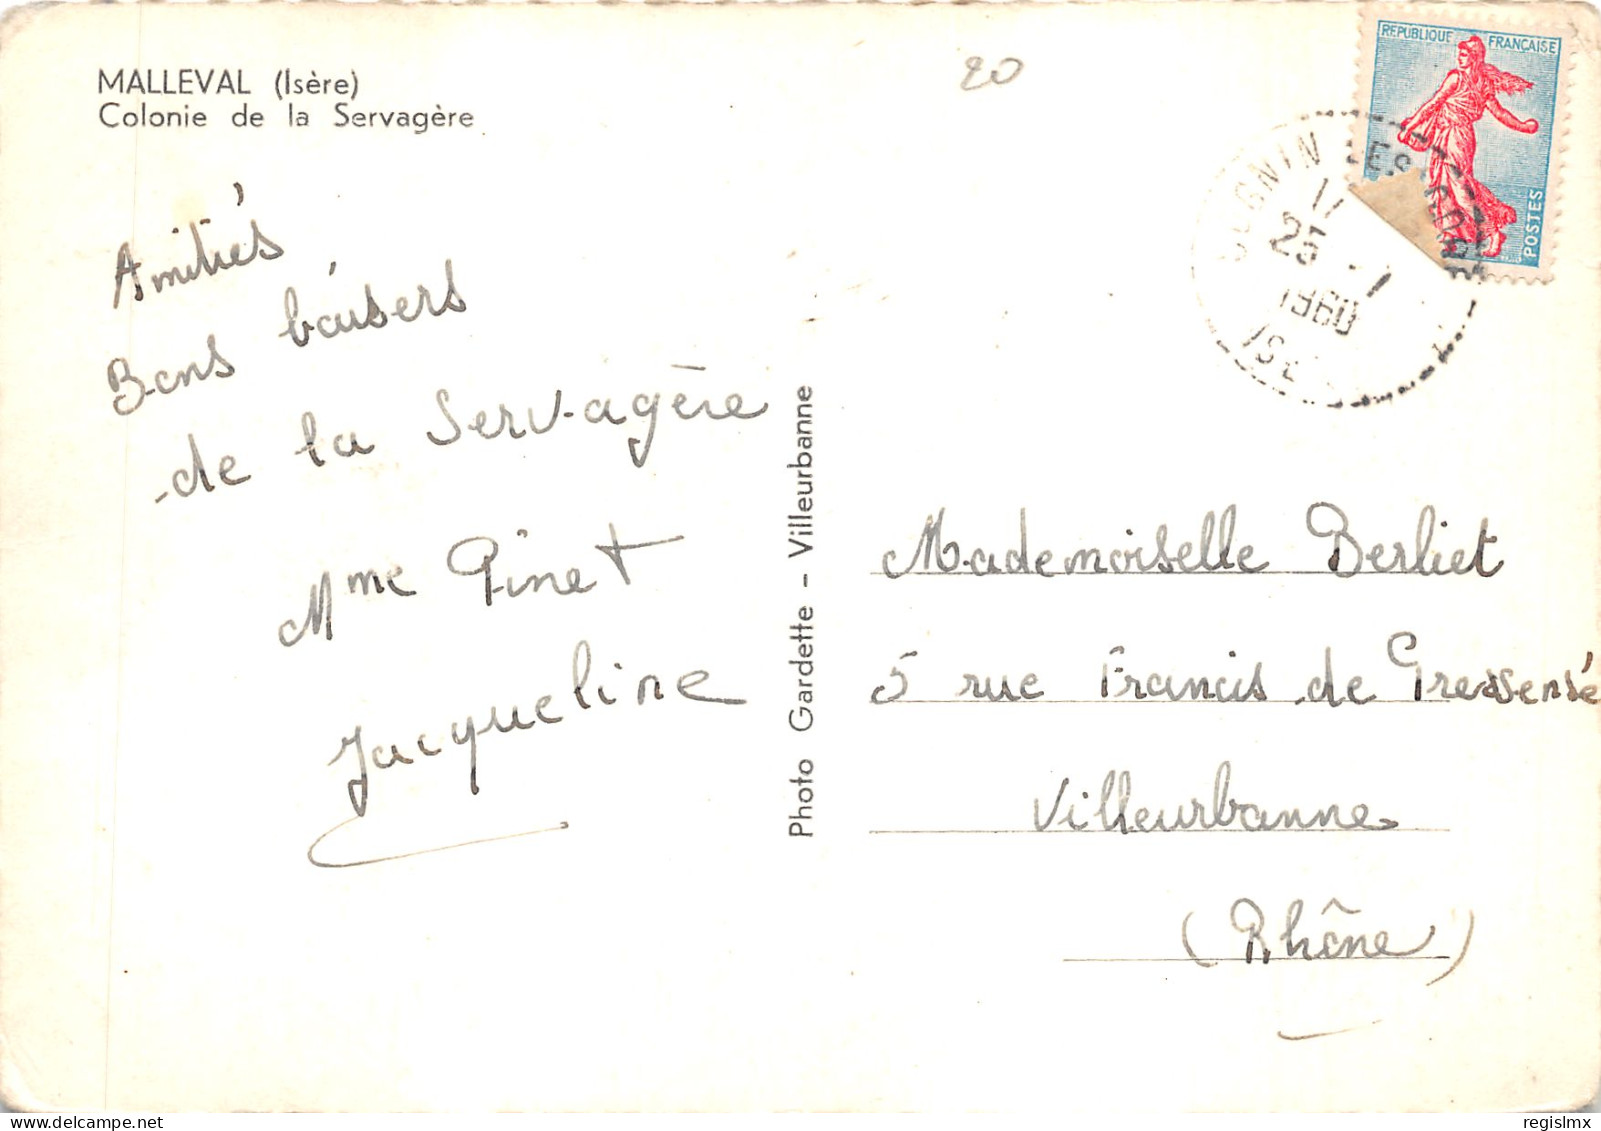 MALLEVAL (Isère)
Colonie de la Servagère
20
REPUBLIQUE FRANÇAISE
POSTES
COGNIN LES
17
25 - 1
1960
ISE
Amitiés
Bons baisers
de la Servagère
Mme Pinet
Jacqueline
Photo Gardette - Villeurbanne
Mademoiselle Berliet
5 rue Francis de Pressensé
Villeurbanne
(Rhône)
delcampe.net
regislmx